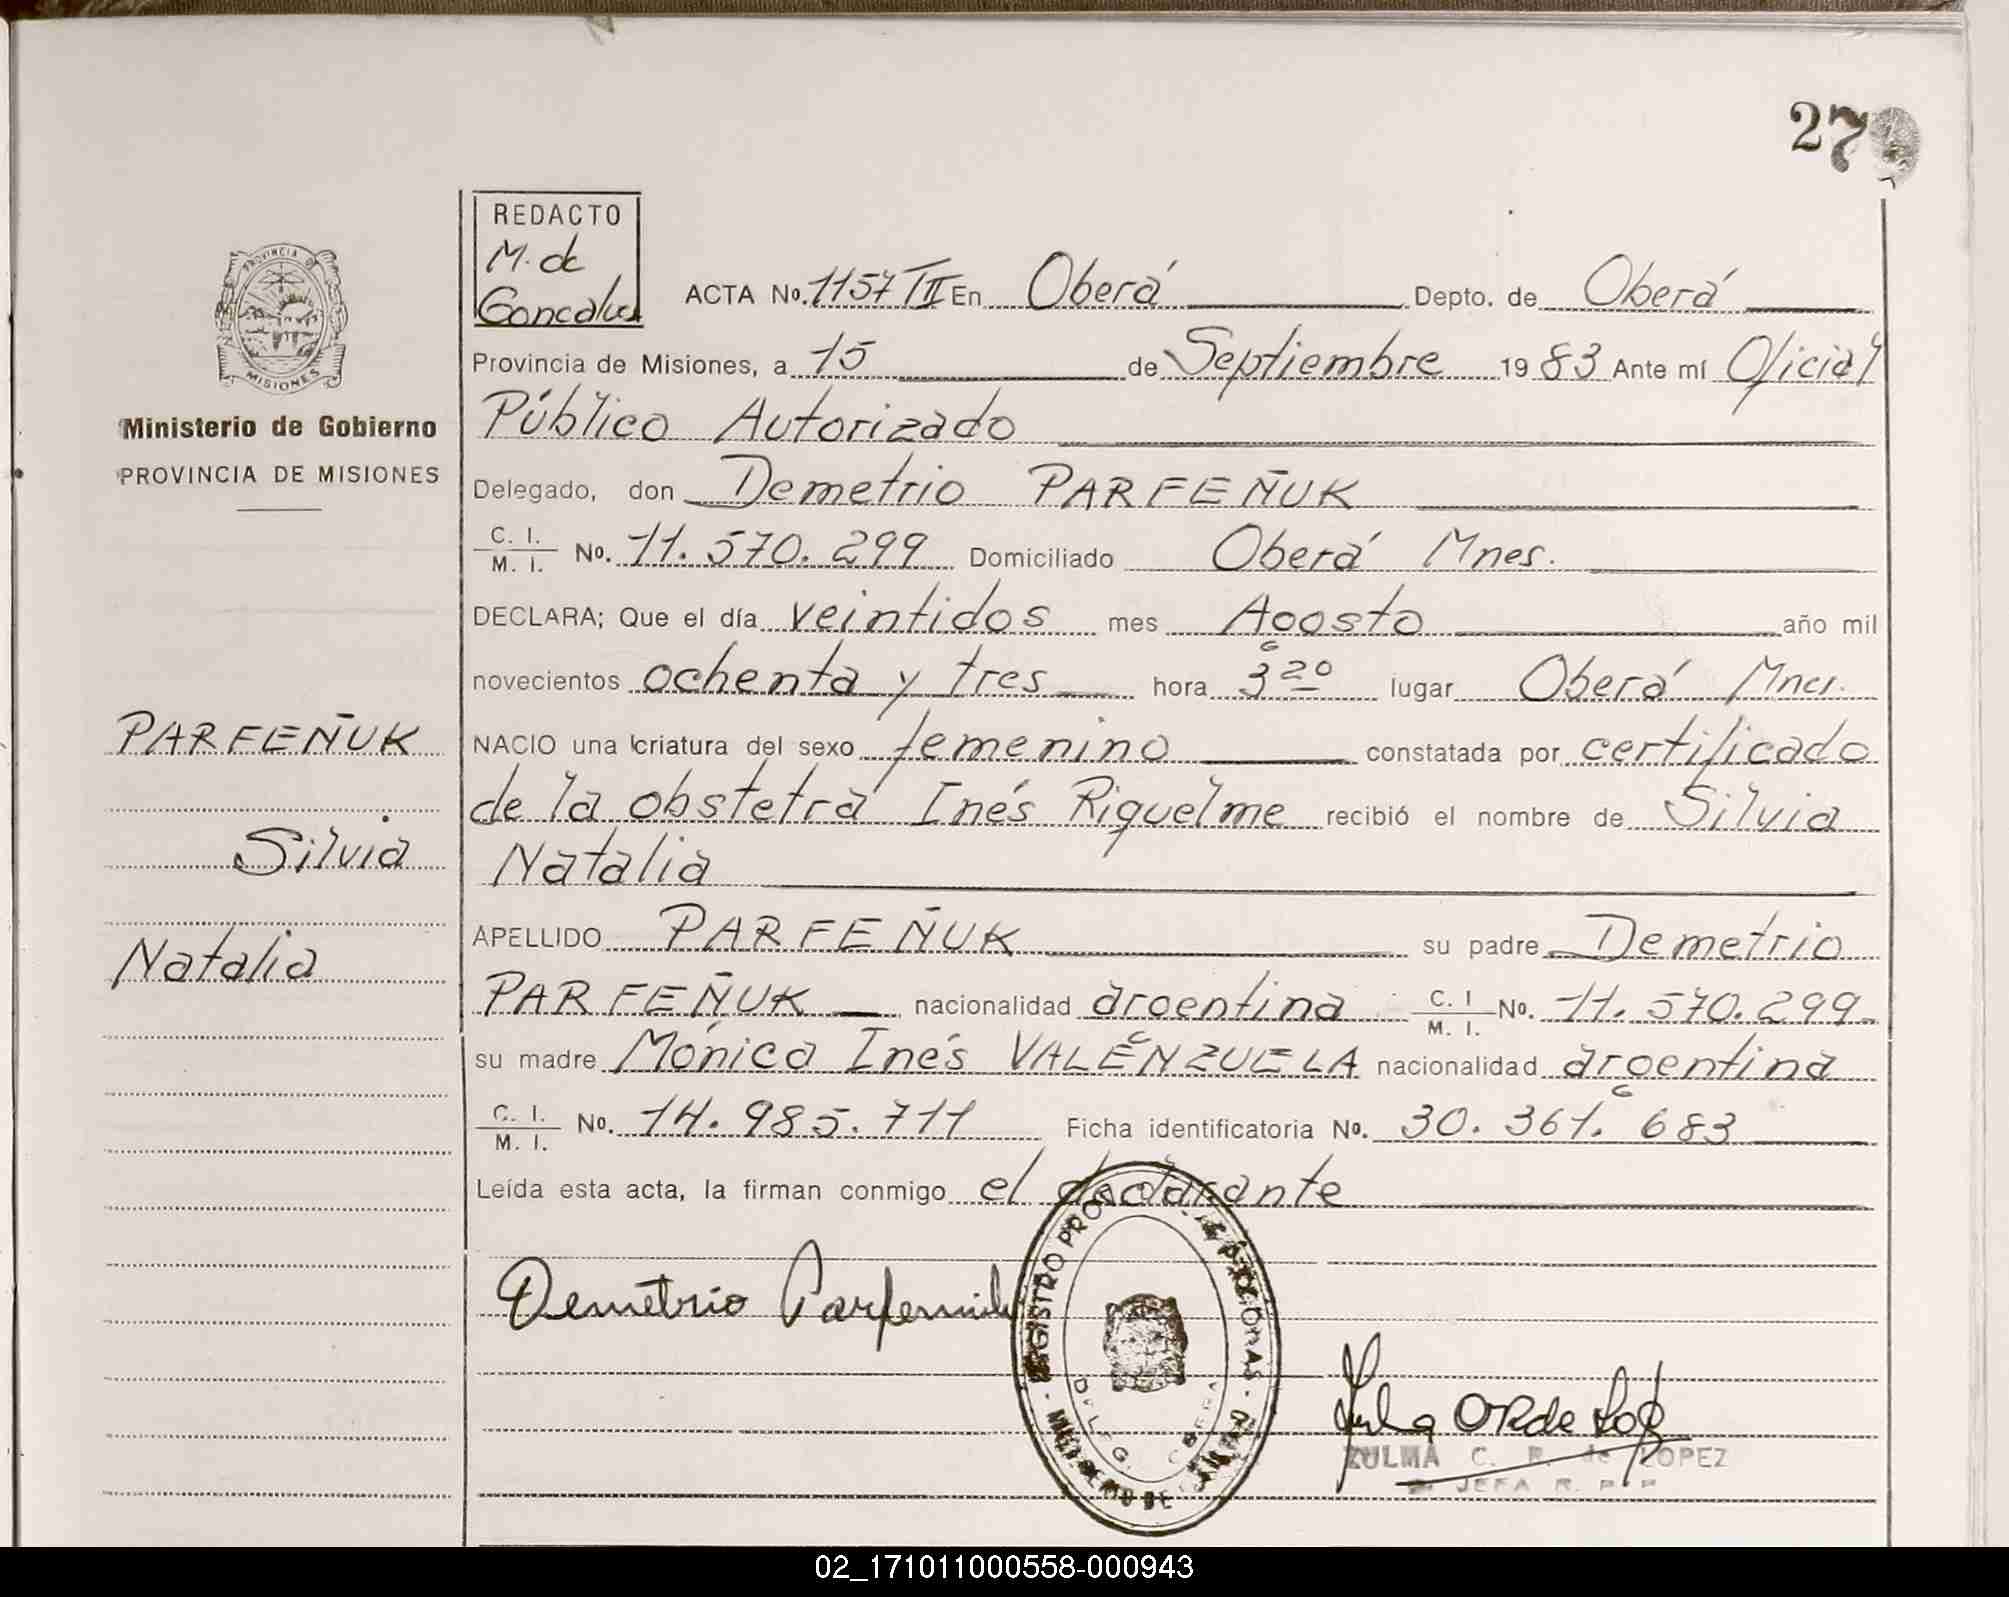 27
REDACTO
M. de
Goncalves
ACTA No. 1157 TII En Oberá Depto. de Oberá
PROVINCIA D
MISIONES
Provincia de Misiones, a 15 de Septiembre 1983 Ante mí Oficial
Ministerio de Gobierno
PROVINCIA DE MISIONES
Público Autorizado
Delegado, don Demetrio PARFEÑUK
C. I.
M. I. No. 11.570.299 Domiciliado Oberá Mnes.
DECLARA; Que el día veintidos mes Agosto año mil
novecientos ochenta y tres hora 3 20 lugar Oberá Mnes.
PARFEÑUK
Silvia
Natalia
NACIO una criatura del sexo femenino constatada por certificado
de la obstetra Inés Riquelme recibió el nombre de Silvia
Natalia
APELLIDO PARFEÑUK su padre Demetrio
PARFEÑUK nacionalidad argentina C. I
M. I. No. 11.570.299
su madre Mónica Inés VALENZUELA nacionalidad argentina
C. I.
M. I. No. 14.985.711 Ficha identificatoria No. 30.361.683
Leída esta acta, la firman conmigo el declarante
Demetrio Parfeniuk
REGISTRO PROV. DE LAS PERSONAS
DELEG. OBERA
ZULMA C. R. de LOPEZ
JEFA R. P. P
02_171011000558-000943